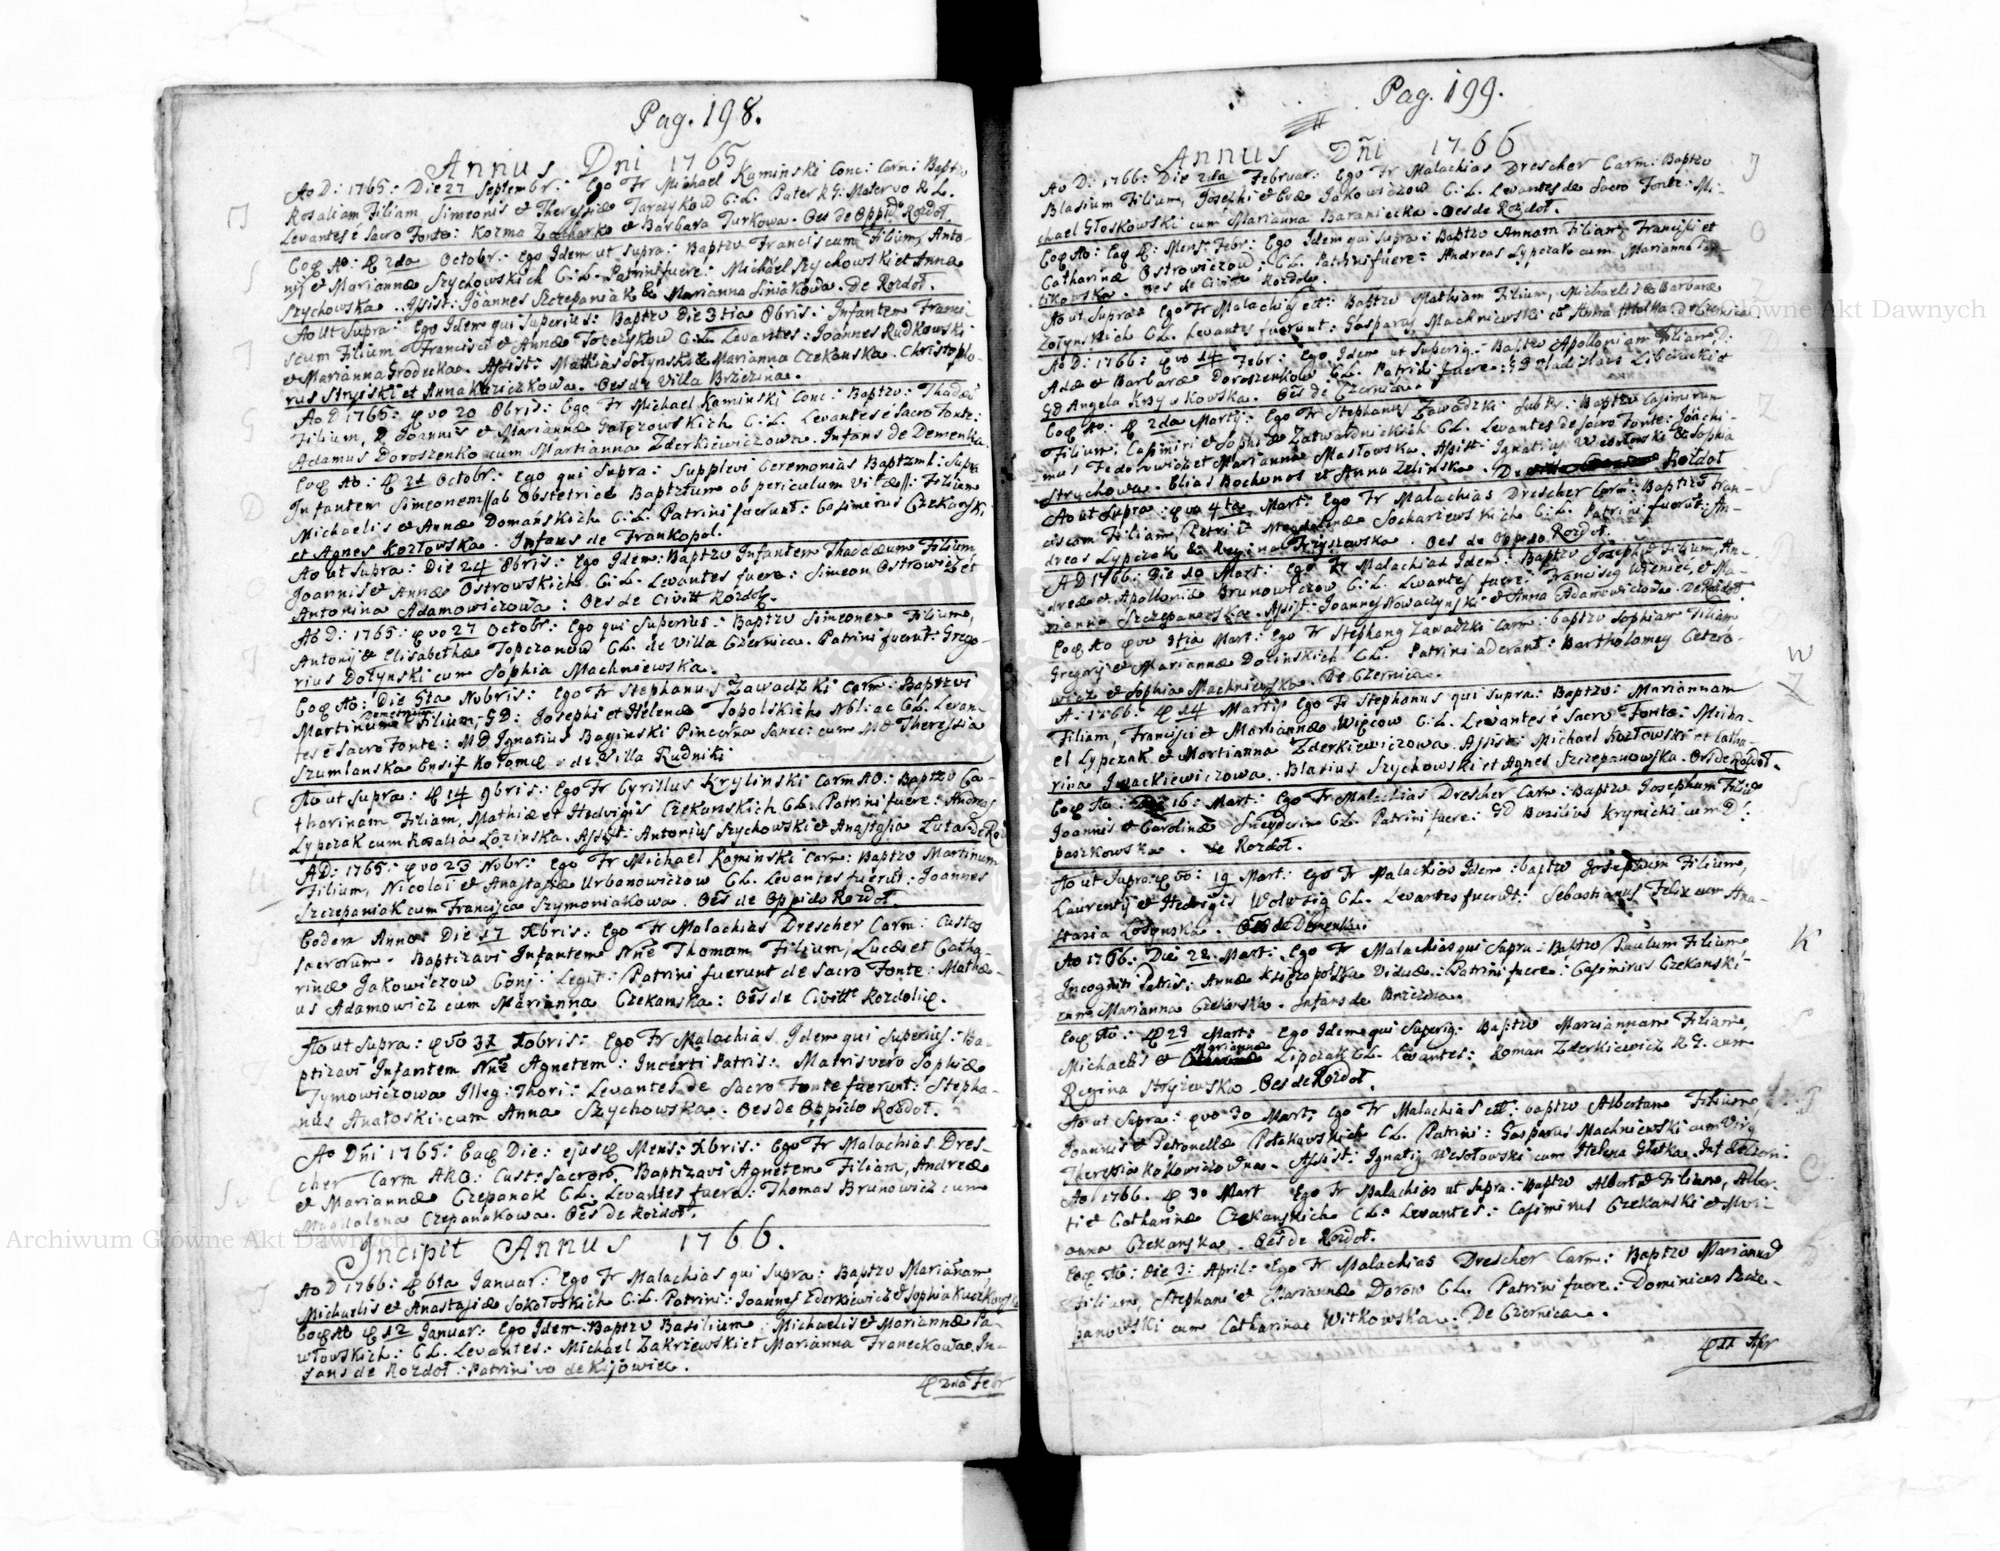 Pag. 198.
Annus Dni 1765
Ao D: 1765: Die 27 Septembr: Ego Fr Michael Kaminski Conc: Carm: Baptzo
Rosaliam Filiam, Simeonis et Theressiæ Tarczykow C: L. Pater R G: Mater vo R. L.
Levantes é Sacro Fonte: Kozma Zacharko et Barbara Turkowa. Oes de Oppido Rozdoł.
Eoq Ao: q 2da Octobr: Ego Idem ut supra: Baptzo Franciscum Filium, Anto-
nij et Mariannæ Szychowskich C: L. Patrini fuere: Michael Szychowski et Anna
Szychowska. Assist: Joannes Szczepaniak & Marianna Siniakowa. De Rozdoł.
Ao ut Supra: Ego Idem qui Superius: Baptzo Die 3tia 8bris: Infantem Franci-
scum Filium Francisci et Annæ C: L. Levantes: Joannes Rudkowski
et Marianna Grodecka. Assist: Mathias Sołynski & Marianna Czekanska. Christopho-
rus Stryiski et Anna Kuziczkowa. Oes de Villa Brzezina.
Ao D 1765: qvo 20 8bris: Ego Fr Michael Kaminski Conc: Baptzo: Thadæi
Filium, D Joannis et Mariannæ Gałęzowskich C: L. Levantes é Sacro Fonte:
Adamus Doroszenko cum Martianna Zderkiewiczowa. Infans de Demenka.
Eoq Ao: q 21 Octobr: Ego qui supra: Supplevi Ceremonias Baptzml: Super
Infantem Simeonem // ab Obstetrice Baptztum ob periculum vitæ //: Filium
Michaelis et Annæ Domańskich C: L: Patrini fuerunt: Casimirus Czekanski
et Agnes Kozłowska. Infans de Frankopol.
Ao ut Supra: Die 24 8bris: Ego Idem: Baptzo Infantem Thaddæum Filium
Joannis et Annæ Ostrowskich C: L. Levantes fuere: Simeon Ostrowicz et
Antonina Adamowiczowa: Oes de Civitt Rozdoł.
Ao D: 1765: qvo 27 Octobr: Ego qui Superius: Baptzo Simeonem Filium,
Antonij et Elisabethæ Topczanow C L. de Villa Czernica. Patrini fuerut: Grego-
rius Dołynski cum Sophia Machniewska.
Eoq Ao: Die 5ta Nobris: Ego Fr Stephanus Zawadzki Carm: Baptzvi
Demetrium
Martinum & Filium, G D: Josephi et Helenæ Topolskich Nbli: ac C L. Levan-
tes é Sacro Fonte: M D. Ignatius Baginski Pincerna Sanec: cum M D Theressia
Szumlanska Ensif Kołom: de Villa Rudniki
Ao ut Supra: q 14 9bris: Ego Fr Cyrillus Krylinski Carm AO: Baptzo Ca-
tharinam Filiam, Mathiæ et Hedvigis Czekanskich C L. Patrini fuere: Andreas
Lypczak cum Rosalia Łozinska. Assist: Antonius Szychowski et Anastasia Luta de Roz
A D: 1765: qvo 23 Nobr: Ego Fr Michael Kaminski Carm: Baptzo Martinum
Filium, Nicolai et Anastasiæ Urbanowiczow C L. Levantes fuerut: Joannes
Szczepaniak cum Francisca Szymoniakowa. Oes de Oppido Rozdoł.
Eodem Anno: Die 17 Xbris: Ego Fr Malachias Drescher Carm: Custos
Sacrorum. Baptizavi Infantem Nñe Thomam Filium, Lucæ et Catha-
rinæ Jakowiczow Conj: Legit: Patrini fuerunt de Sacro Fonte: Mathæ-
us Adamowicz cum Marianna Czekanska: Oes de Civitte Rozdoliq.
Ao ut Supra: qvo 31 Xobris: Ego Fr Malachias Idem qui Superius: Ba-
ptizavi Infantem Nñe Agnetem: Incerti Patris: Matris vero Sophiæ
Tymowiczowa Illeg: Thori: Levantes de Sacro Fonte fuerunt: Stepha-
nus Anatoski cum Anna Szychowska: Oes de Oppido Rozdoł.
Ao Dñi 1765: Eaq Die: ejusq Mens: Xbris: Ego Fr Malachias Dres-
cher Carm ARO: Cust: Sacror, Baptizavi Agnetem Filiam, Andreæ
et Mariannæ Czepanak C L. Levantes fuere: Thomas Brunowicz cum
Magdalena Czepanakowa. Oes de Rozdoł.
Incipit Annus 1766.
Ao D 1766: q 6ta Januar: Ego Fr Malachias qui Supra: Baptzo Mariānam,
Michaelis et Anastasiæ Sokołoskich C: L. Patrini: Joannes Zderkiewicz et Sophia Kuczkowska
Eoq Ao q 12 Januar: Ego Idem Baptzo Basilium: Michaelis et Mariannæ Pa-
włowskich: C L. Levantes: Michael Zakrzewski et Marianna Franeckowa. In-
fans de Rozdoł: Patrini vo de Kijowiec.
q 2da Febr
Pag. 199.
Annus Dñi 1766
Ao D: 1766: Die 2da Februar: Ego Fr Malachias Drescher Carm: Baptzo
Blasium Filium, Josephi et Evæ Jakowiczow C: L. Levantes de Sacro Fonte: Mi-
chael Głoskowski cum Marianna Baraniecka. Oes de Rozdoł.
Eoq Ao: Eaq q: Mens: Febr: Ego Idem qui supra: Baptzo Annam Filiam, Francisci et
Catharinæ Ostrowiczow: C L. Patrini fuere: Andreas Lypczak cum Marianna
Oes de Civitte Rozdoł.
Ao ut Supra: Ego Fr Malachij etē: Baptzo Mathiam Filium, Michaelis et Barbaræ
Zołynskich C L. Levantes fuerunt: Gasparus Machniewski et Anna
Ao D: 1766: qvo 14 Febr: Ego Idem ut Superig: Baptzo Apolloniam Filiam D:
Adæ et Barbaræ Doroszenkow C L. Patrini fuere: G D Vladislaus Libicki et
G D Angela Krzyskowska. Oes de Czernica.
Eoq Ao: q 2da Martij: Ego Fr Stephanus Zawadzki Sub Pr: Baptzo Casimirum
Filium, Casimiri et Sophiæ Zatwardnickich C L. Levantes de Sacro Fonte: Joachi-
mus Fedorowicz et Marianna Masłowska. Assist: Ignatius Wesołowski & Sophia
Strychowa. Elias Bochenos et Anna Zelinska. Rozdoł
Ao ut Supra: qvo 4ta Mart: Ego Fr Malachias Drescher Carm: Baptzo Fran-
ciscam Filiam Petri et Magdalenæ Sochaczewskich C: L. Patrini fuerut: An-
dreas Lypczak & Regina Stryszewska. Oes de Oppido Rozdoł.
A D 1766: Die 10 Mart: Ego Fr Malachias Idem: Baptzo Josephū Filium, An-
dreæ et Apolloniæ Brunowiczow C: L. Levantes fuere: Franciscq Wozniec, et Ma-
rianna Szczepanowska. Assist: Joannes Nowaczynski et Anna Adamowiczowa. De Rozdoł
Eoq Ao qvo 9tia Mart: Ego Fr Stephang Zawadzki Carm: baptzo Sophiam Filiam
Gregorij et Mariannæ Dolinskich C L. Patrini aderant: Bartholomeg Cetero-
wicz et Sophia Machniewska. De Czernica.
A: 1766. q 14 Martij Ego Fr Stephanus qui Supra: Baptzo: Mariannam
Filiam, Francisci et Mariannæ Więcow C: L. Levantes é Sacro Fonte: Micha-
el Lypczak et Martianna Zderkiewiczowa. Assist: Michael Kozłowski et Catha-
rina Iwackiewiczowa. Blasius Szychowski et Agnes Szczepanowska. Oes de Rozdoł.
Eoq Ao: 16: Mart: Ego Fr Malachias Drescher Carm: Baptzo Josephum Filiū
Joannis et Carolinæ Sneyderow C L. Patrini fuere: G D Basilius Krynicki cum D:
paszkowska. de Rozdoł.
Ao ut Supra: qvo: 19 Mart: Ego Fr Malachias Idem: baptzo Josephum Filium,
Laurentij et Hedvigis Wolwzig C L. Levantes fuerut: Sebastianus Felix cum Ana-
stasia Lozynska. Oes de Demenka.
Ao 1766: Die 22 Mart: Ego Fr Malachias qui Supra: Baptzo Paulum Filium
Incogniti Patris: Annæ Księzopolska Viduæ: Patrini fuere: Casimirus Czekanski
cum Marianna Czekanska. Infans de Brzezina.
Eoq Ao: q 23 Mart: Ego Idem qui Superig: Baptzo Mariannam Filiam,
Marianna
Michaelis et Lipczak C L. Levantes: Roman Zderkiewicz R G. cum
Regina Stryzewska. Oes de Rozdoł.
Ao ut Supra: qvo 30 Mart; Ego Fr Malachias etē: baptzo Albertum Filium,
Joannis et Petronellæ Potakowskich C L. Patrini: Gasparus Machniewski cum Virg
Theressia Assist: Ignatij Wesołowski cum Helena Głatka. Inf de Czern:
Ao 1766. q 30 Mart Ego Fr Malachias ut Supra: Baptzo Albertū Filium, Alber-
ti et Catharinæ Czekanskich C L. Levantes: Casimirus Czekanski et Mari-
anna Czekanska. Oes de Rozdoł.
Eoq Ao: Die 3: April: Ego Fr Malachias Drescher Carm: Baptzo Mariannā
Filiam, Stephani et Mariannæ Dorow C L. Patrini fuere: Dominicus Szcze-
panowski cum Catharina Witkowska. De Czernica.
q 11 Apr
Archiwum Główne Akt Dawnych
Archiwum Główne Akt Dawnych